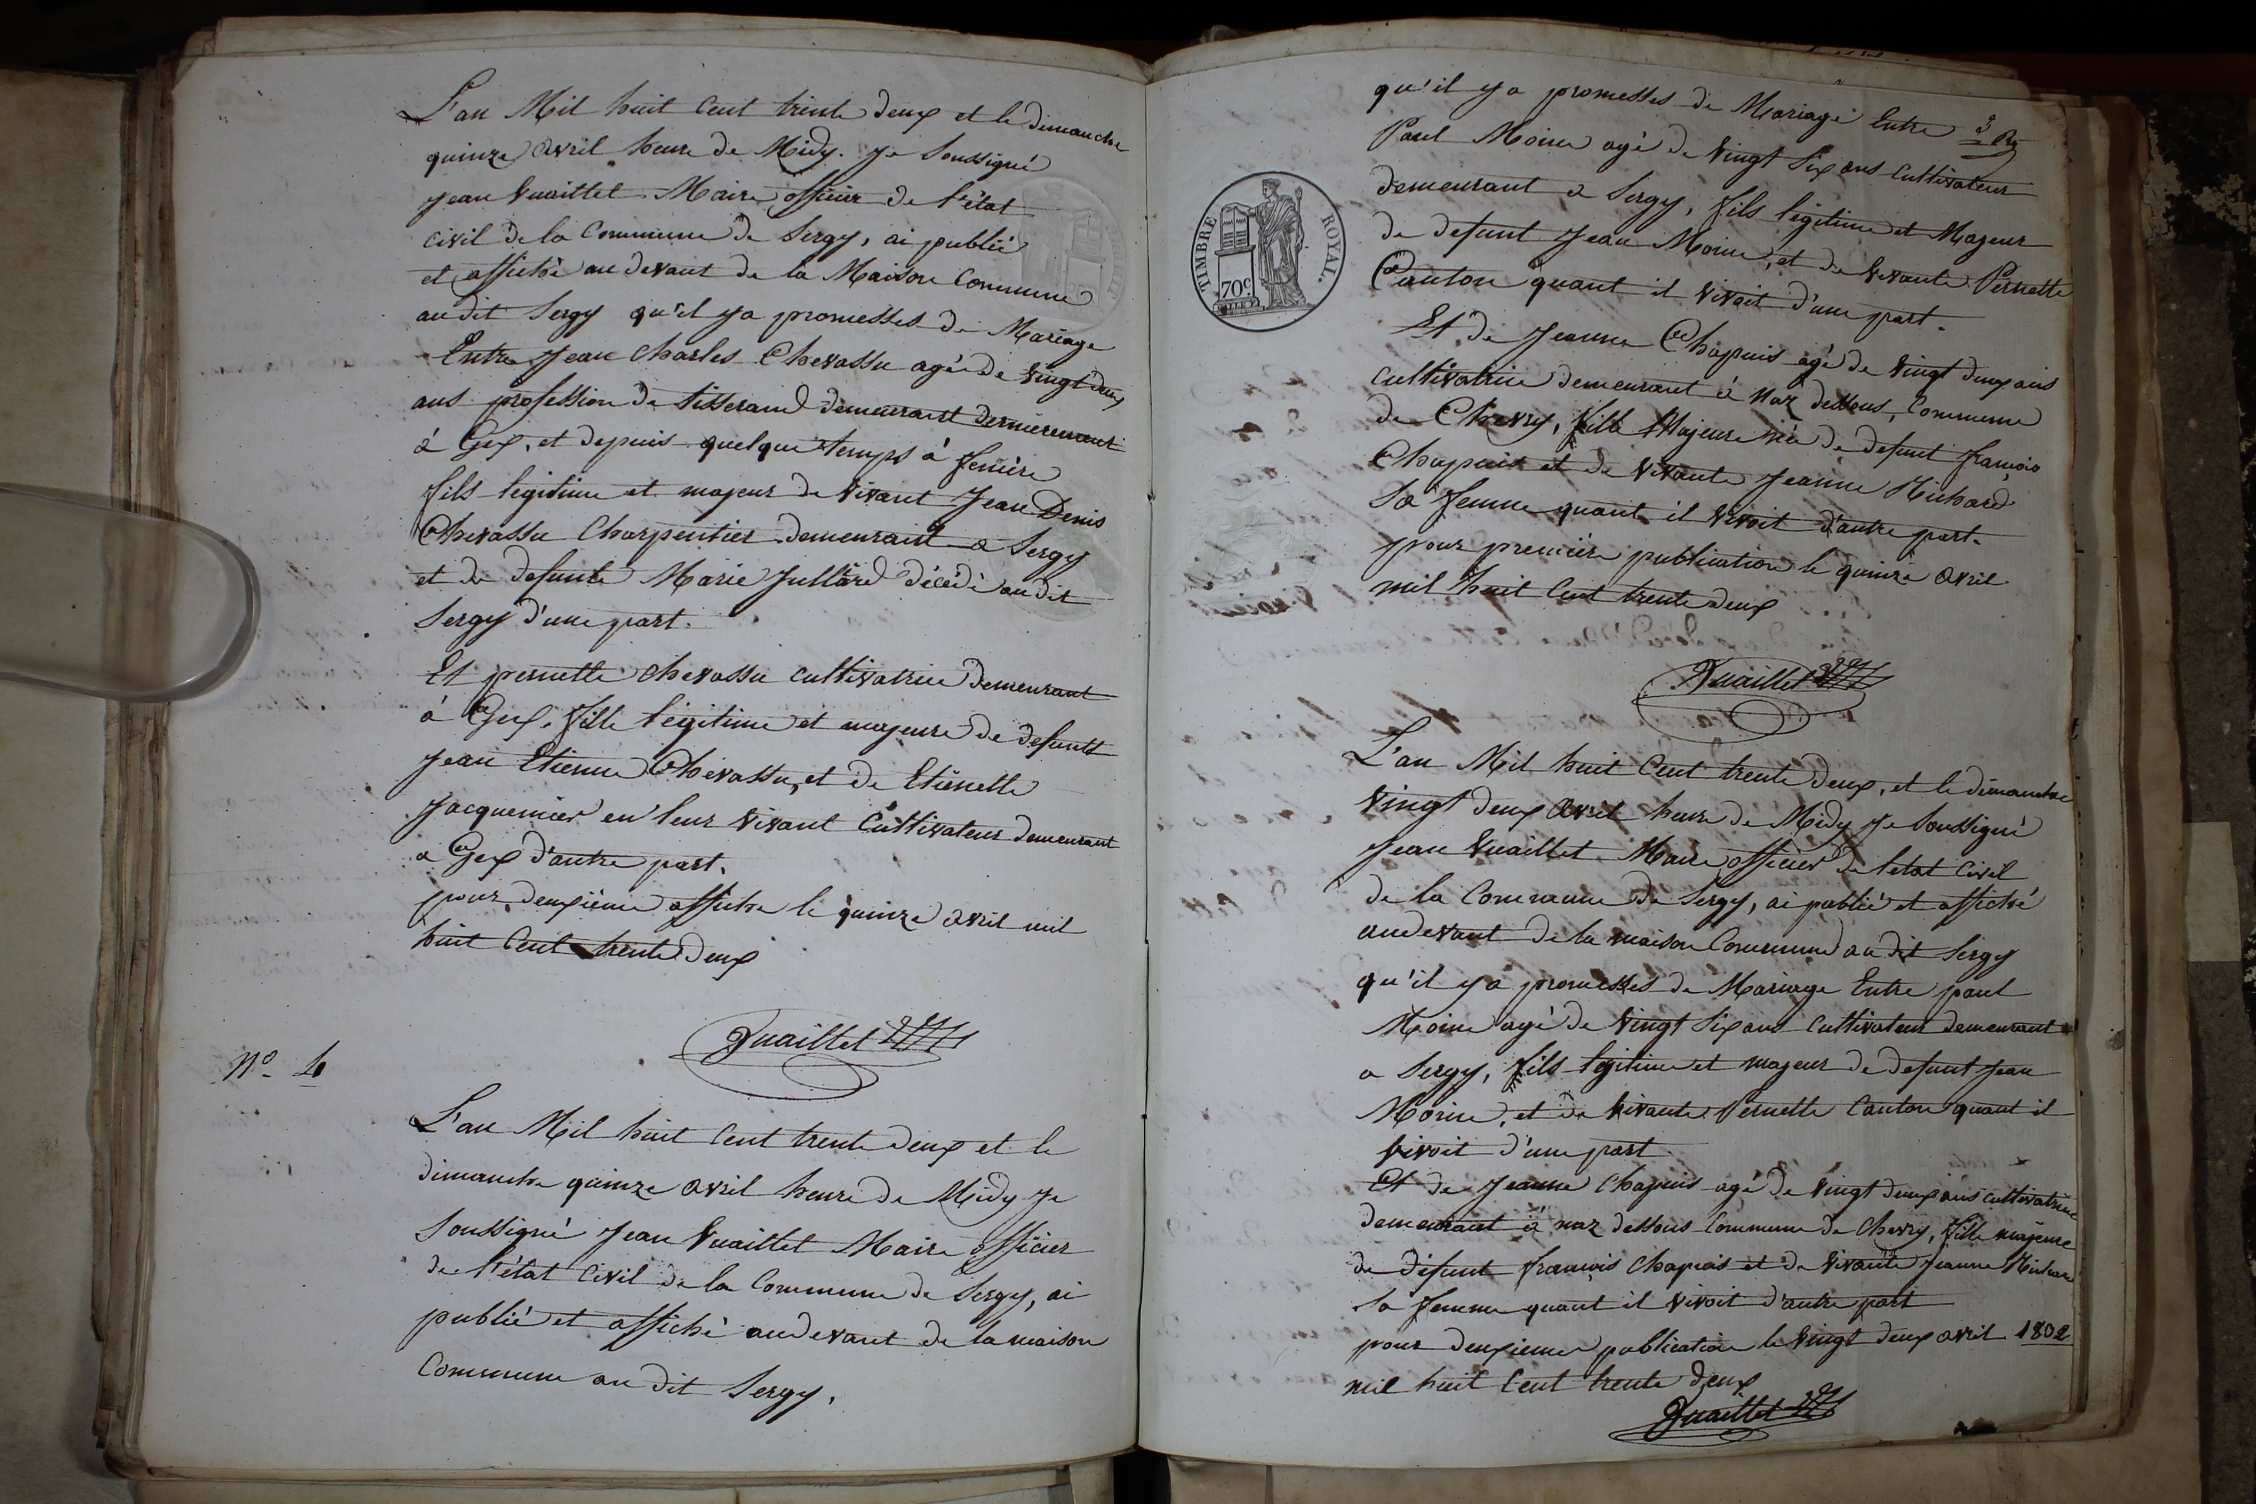 L'an Mil huit Cent trente deux et le dimanche
quinze avril heure de Midy. Je Soussigné
Jean Vuaillet Maire officier de l'état
civil de la Commune de Sergy, ai publié
et affiché au devant de la Maison Commune
audit Sergy qu'il y a promesses de Mariage
Entre Jean Charles Chevassu agé de vingt deux
ans profession de tisserand demeurant dernièrement
à Gex, et depuis quelque temps à
fils legitime et majeur de vivant Jean Denis
Chevassu Charpentier demeurant a Sergy
et de defunte Marie Julliard décédé au dit
Sergy d'une part.
Et pernette chevassu cultivatrice demeurant
à Gex, fille légitime et majeure de defunts
Jean Etienne Chevassu, et de Etienette
Jacquemier en leur vivant Cultivateur demeurant
a Gex d'autre part.
pour deuxième affiche le quinze avril mil
huit Cent trente deux
Vuaillet
N° 4
L'an Mil huit Cent trente deux et le
dimanche quinze avril heure de Midy Je
Soussigné Jean Vuaillet Maire officier
de l'état Civil de la Commune de Sergy, ai
publié et affiché audevant de la maison
Commune au dit Sergy,
qu'il y a promesses de Mariage Entre
Paul Moine agé de vingt Six ans Cultivateur
demeurant a Sergy, fils légitime et Majeur
de defunt Jean Moine, et de vivante Pernette
Canton quant il vivoit d'une part.
Et de Jeanne Chapuis agé de vingt deux ans
cultivatrice demeurant à naz dessous, Commune
de Chevry, fille Majeure née de defunt françois
Chapuis et de vivante Jeanne Michard
Sa femme quant il vivoit d'autre part.
pour première publication le quinze avril
mil huit Cent trente deux
Vuaillet
TIMBRE ROYAL.
70c
L'an Mil huit Cent trente deux, et le dimanche
vingt deux avril heure de Midy Je Soussigné
Jean Vuaillet Maire officier de l'etat Civil
de la Commune de Sergy, ai publié et affiché
audevant de la maison Commune au dit Sergy
qu'il y a promesses de Mariage Entre paul
Moine agé de vingt Six ans Cultivateur demeurant
a Sergy, fils legitime et majeur de defunt Jean
Moine, et de vivante Pernette Canton quant il
vivoit d'une part
Et de Jeanne Chapuis agé de vingt deux ans cultivatrice
demeurant à naz dessous Commune de Chevry, fille majeure
de défunt françois Chapuis et de vivante Jeanne Michard
Sa femme quant il vivoit d'autre part
pour deuxieme publication le vingt deux avril 1832
mil huit Cent trente deux
Vuaillet